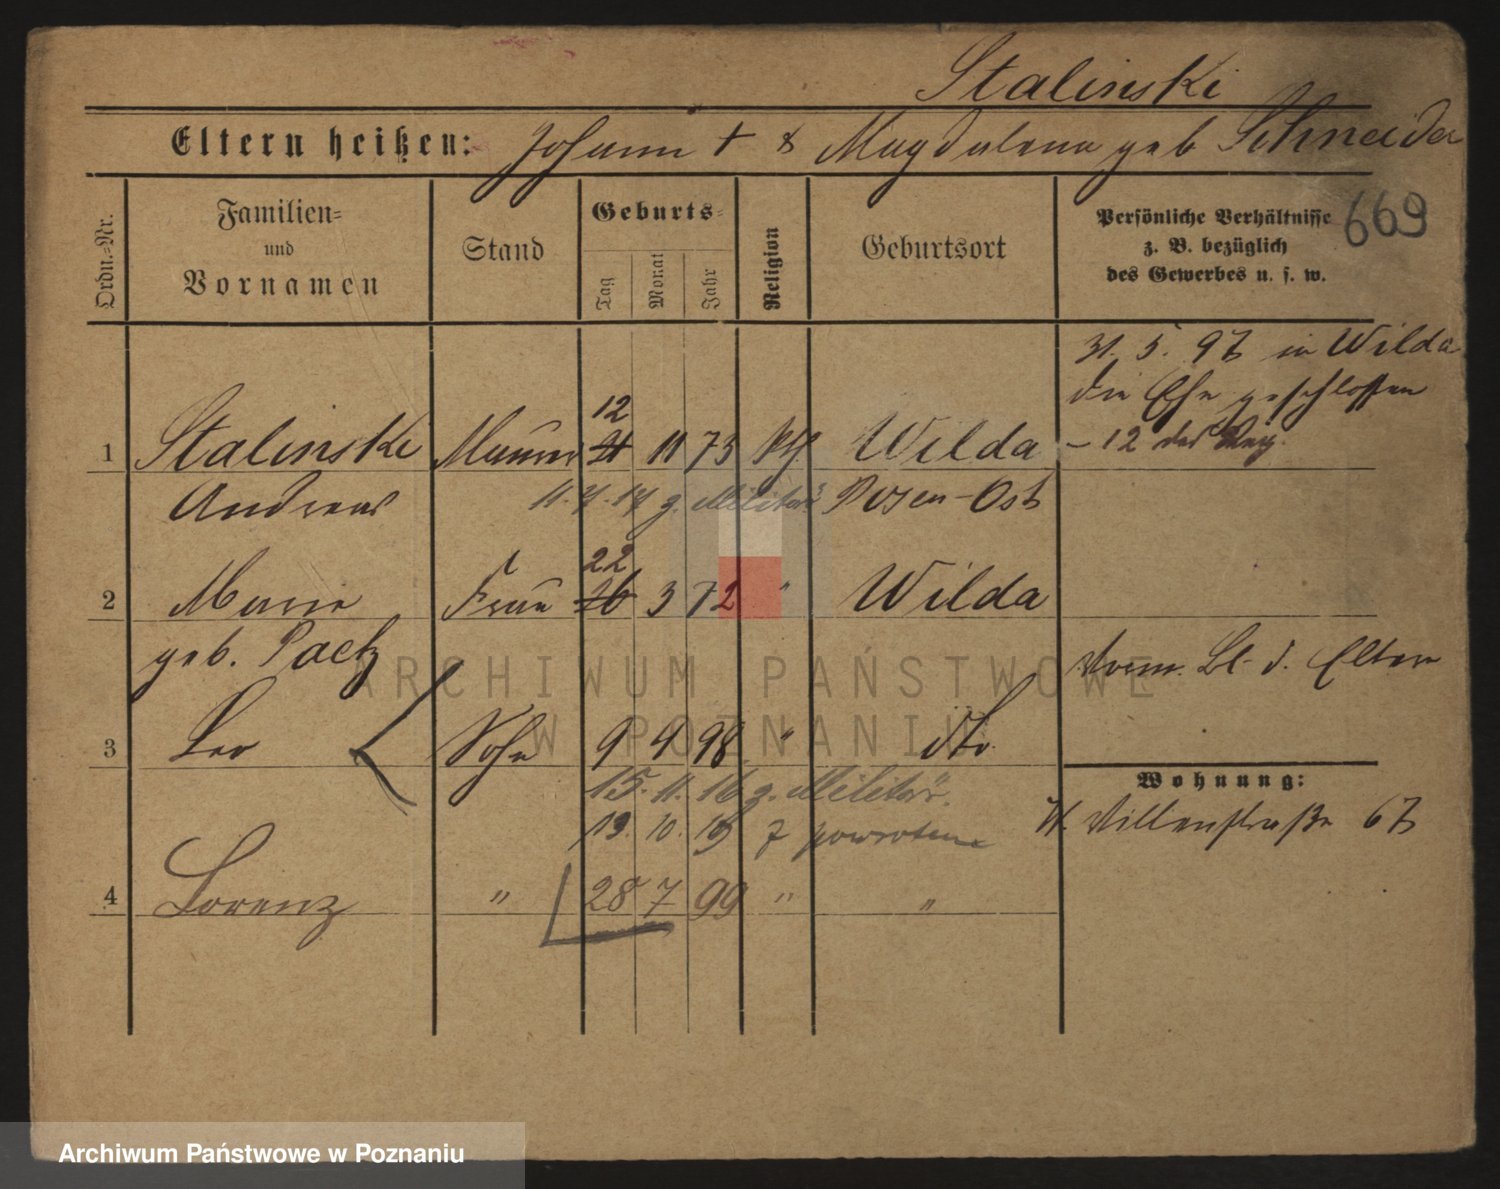 Stalinski
Eltern heißen: Johann + & Magdalena geb Schneider
Ordn.-Nr.
Familien- und Vornamen
Stand
Geburts-
Tag Monat Jahr
Religion
Geburtsort
Persönliche Verhältnisse
z. B. bezüglich
des Gewerbes u. s. w.
669
31. 5. 97 in Wilda
die Ehe geschlossen
12
1 Stalinski Maurer 21 11 73 kth Wilda
– 12 des Reg.
Andreas
g. Militär Posen-Ost
22
2 Marie Frau 26 3 72 " Wilda
geb. Paetz
d. Eltern
3 Leo Sohn 9 9 98 " dto
15. 11. 16 g. Militär.
Wohnung:
19. 10. 19 z powrotem
W. Villenstraße 67
4 Lorenz " 28 7 99 " "
ARCHIWUM PAŃSTWOWE
W POZNANIU
Archiwum Państwowe w Poznaniu